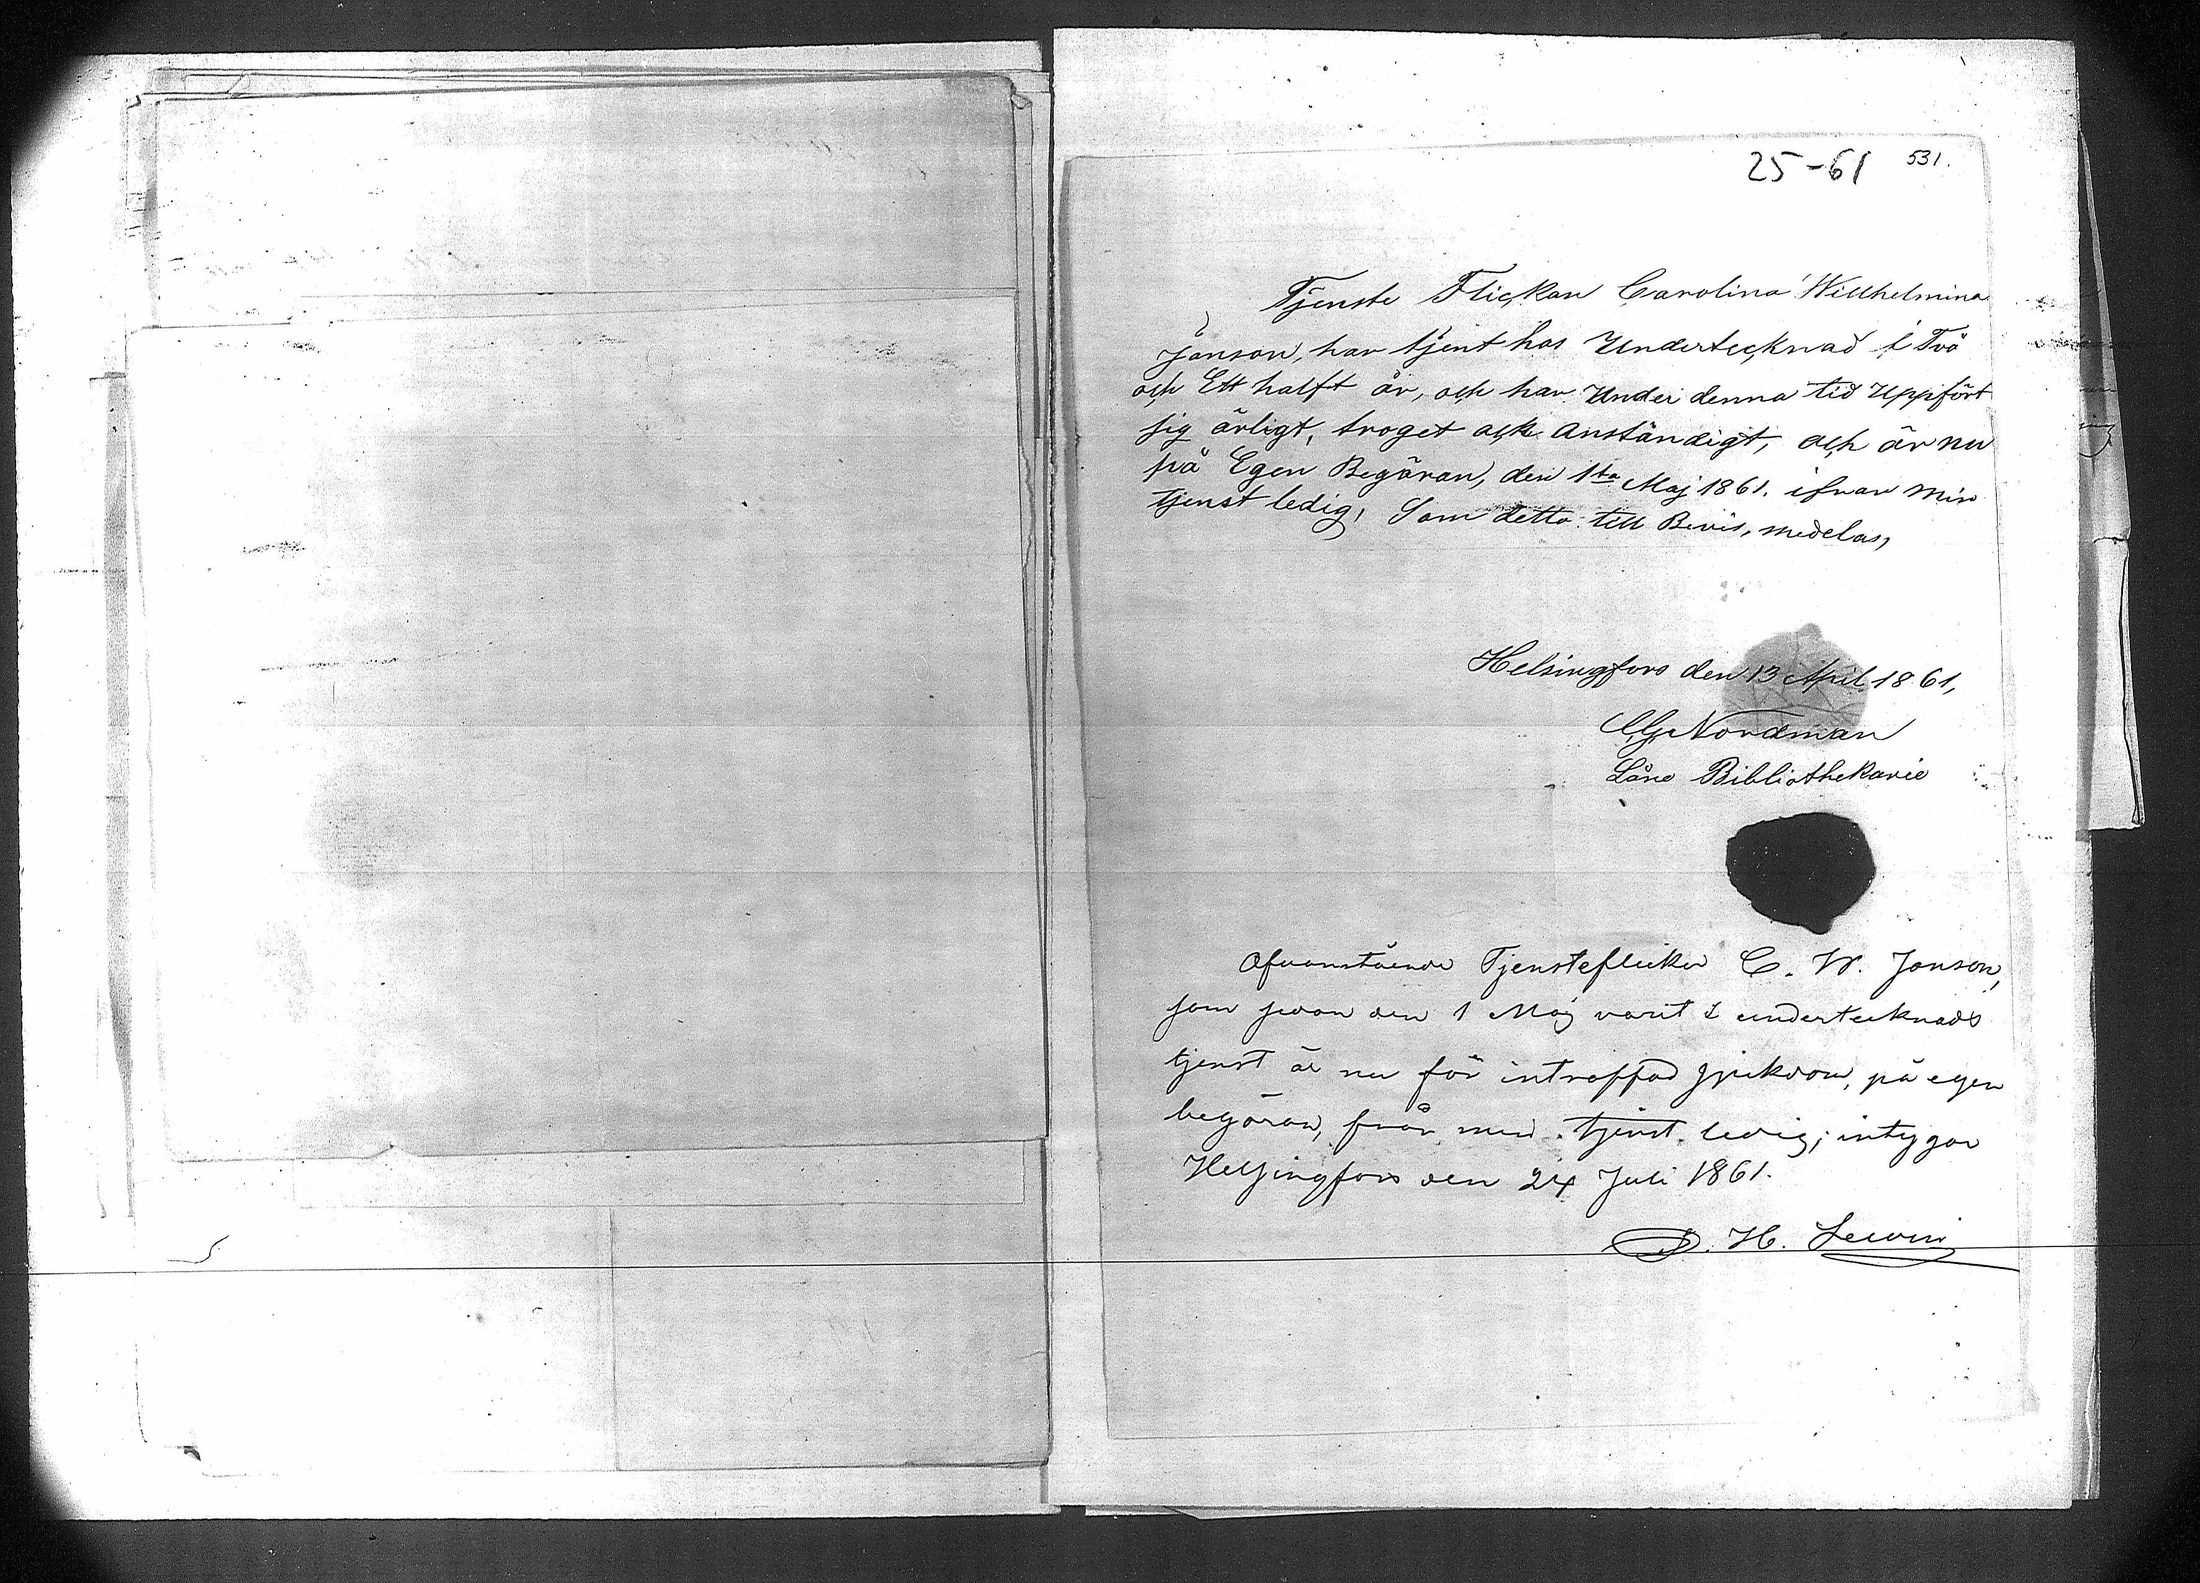 25-61 531.
Tjenste Flickan Carolina Willhelmina
Jonson, har tjent hos Undertecknad i Två
och Ett halft år, och har Under denna tid Uppfört
sig ärligt, troget och Anständigt, och är nu
på Egen Begäran, den 1sta Maj 1861. ifrån min
tjenst ledig, Som detta till Bevis, medelas,
Helsingfors den 13 April 1861,
C G Nordman
Låne Bibliothekarie
Ofvanstående Tjensteflicka C. W. Jonson,
som sedan den 1 Maj varit i undertecknads
tjenst är nu för inträffad sjukdom, på egen
begäran, från min tjenst ledig; intygar
Helsingfors den 24 Juli 1861.
H. Lewin